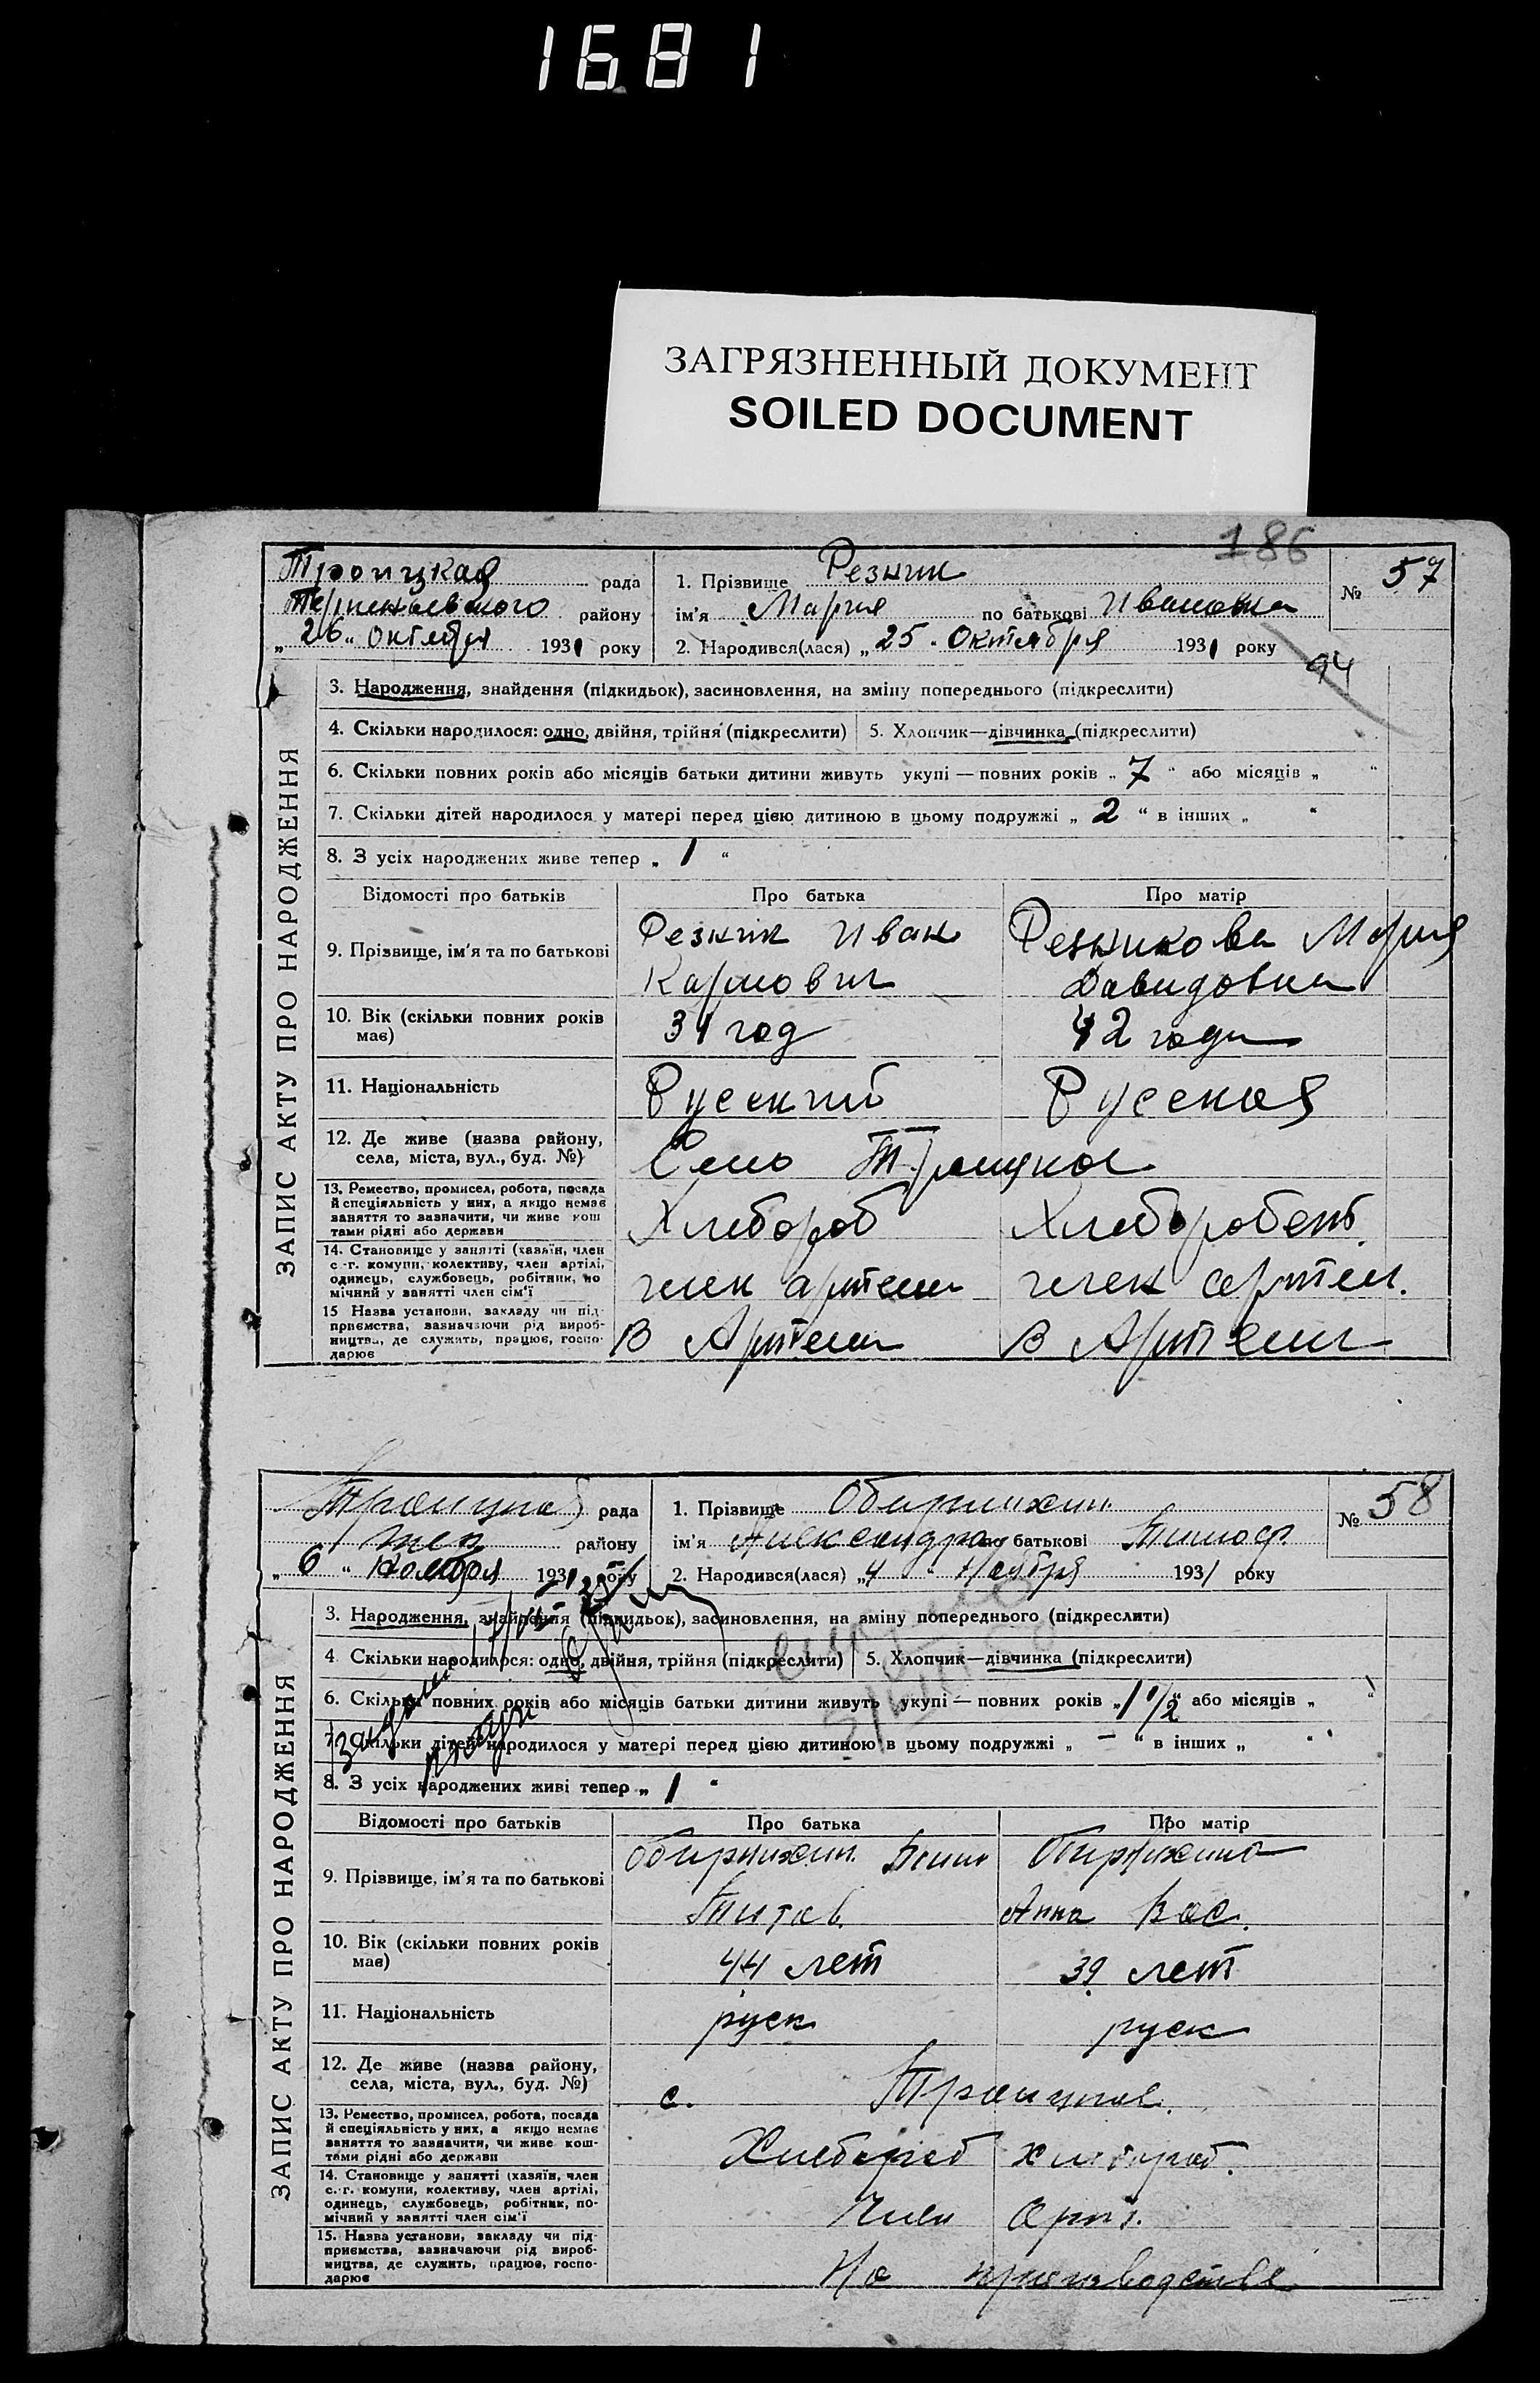 1681
ЗАГРЯЗНЕННЫЙ ДОКУМЕНТ
SOILED DOCUMENT
186
Троицкая рада
району
„26“ октября 1931 року
1. Прізвище Резник
ім'я Мария по батькові Ивановна
2. Народився(лася) „25“ Октября 1931 року
№ 57
94
ЗАПИС АКТУ ПРО НАРОДЖЕННЯ
3. Народження, знайдення (підкидьок), засиновлення, на зміну попереднього (підкреслити)
4. Скільки народилося: одно, двійня, трійня (підкреслити)
5. Хлопчик—дівчинка (підкреслити)
6. Скільки повних років або місяців батьки дитини живуть укупі — повних років „7“ або місяців „ “
7. Скільки дітей народилося у матері перед цією дитиною в цьому подружжі „2“ в інших „ “
8. З усіх народжених живе тепер „1“
Відомості про батьків Про батька Про матір
9. Прізвище, ім'я та по батькові
Резник Иван
Карпович
Резникова Мария
Давидовна
10. Вік (скільки повних років має)
31 год
42 года
11. Національність
Русский
Русская
12. Де живе (назва району,
села, міста, вул., буд. №)
Село Троицкое
13. Ремество, промисел, робота, посада
й спеціяльність у них, а якщо немає
заняття то зазначити, чи живе кош
тами рідні або держави
Хлебороб
14. Становище у занятті (хазяїн, член
с.-г. комуни, колективу, член артілі,
одинець, службовець, робітник, по
мічний у занятті член сім'ї
член артели
член артел.
15 Назва установи, закладу чи під-
приємства, зазначаючи рід вироб-
ництва, де служить, працює, госпо-
дарює
В Артели
В Артели
Троицкая рада
району
„6“ Ноября 1931 року
1. Прізвище
ім'я Александра по батькові Тимоф.
2. Народився(лася) „4“ Ноября 1931 року
№ 58
ЗАПИС АКТУ ПРО НАРОДЖЕННЯ
3. Народження, знайдення (підкидьок), засиновлення, на зміну попереднього (підкреслити)
4 Скільки народилося: одно, двійня, трійня (підкреслити)
5. Хлопчик—дівчинка (підкреслити)
6. Скільки повних років або місяців батьки дитини живуть укупі — повних років „1 1/2“ або місяців „ “
7. Скільки дітей народилося у матері перед цією дитиною в цьому подружжі „—“ в інших „ “
8. З усіх народжених живі тепер „1“
Відомості про батьків Про батька Про матір
9. Прізвище, ім'я та по батькові
Тим
Титов.
Анна Вас.
10. Вік (скільки повних років
має)
44 лет
39 лет
11. Національність
руск
руск
12. Де живе (назва району,
села, міста, вул., буд. №)
с. Троицкое.
13. Ремество, промисел, робота, посада
й спеціяльність у них, а якщо немає
заняття то зазначити, чи живе кош-
тами рідні або держави
Хлебороб
хлебороб.
14. Становище у занятті (хазяїн, член
с.-г. комуни, колективу, член артілі,
одинець, службовець, робітник, по-
мічний у занятті член сім'ї
Член Арт.
15. Назва установи, закладу чи під-
приємства, зазначаючи рід вироб-
ництва, де служить, працює, госпо-
дарює
На производстве